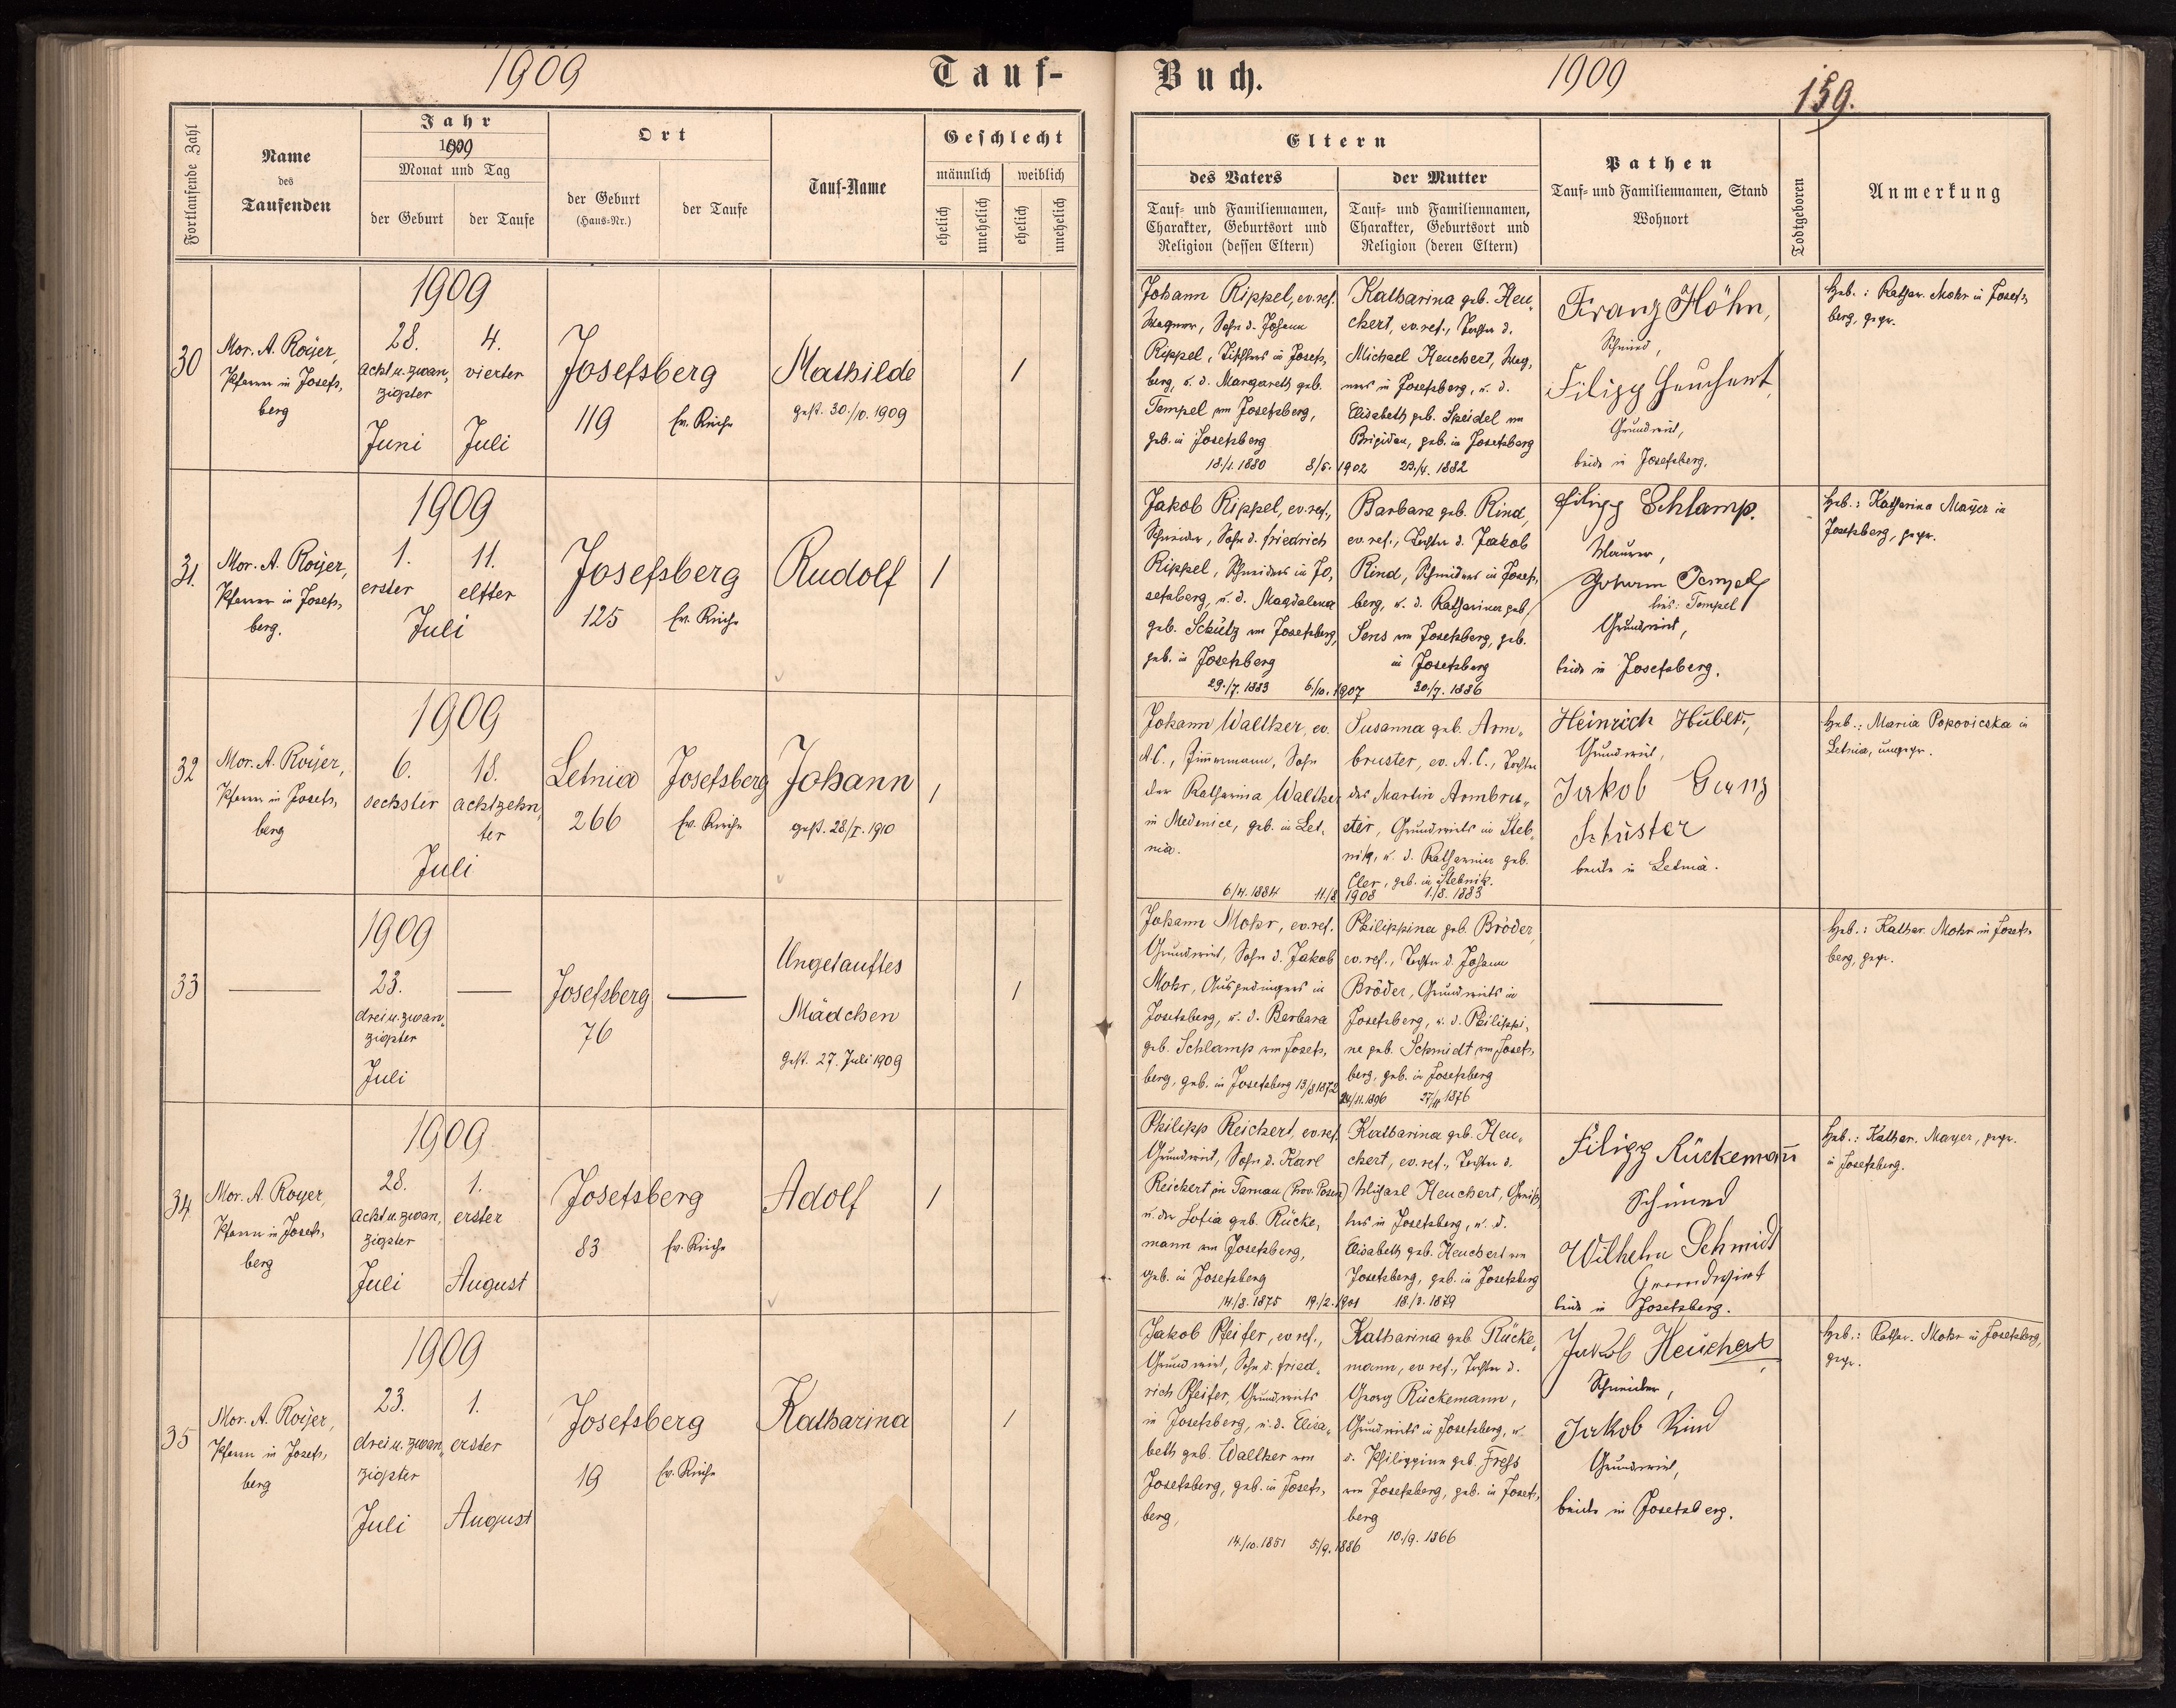 1909
Tauf-
Buch.
1909
159.
Fortlaufende Zahl
Name
des
Taufenden
Jahr
1909
Monat und Tag
der Geburt
der Taufe
Ort
der Geburt
(Haus-Nr.)
der Taufe
Tauf-Name
Geschlecht
männlich
weiblich
ehelich
unehelich
ehelich
unehelich
Eltern
des Vaters
Tauf- und Familiennamen,
Charakter, Geburtsort und
Religion (dessen Eltern)
der Mutter
Tauf- und Familiennamen,
Charakter, Geburtsort und
Religion (deren Eltern)
Pathen
Tauf- und Familiennamen, Stand
Wohnort
Todtgeboren
Anmerkung
30
Mor. A. Royer,
Pfarrer in Josefs„
berg
1909
28.
acht u. zwan„
zigster
Juni
4.
vierter
Juli
Josefsberg
119
Ev. Kirche
Mathilde
gest. 30./10. 1909
/
Johann Rippel, ev. ref.
Wagner, Sohn d. Johann
Rippel, Tischlers in Josefs„
berg, u. d. Margareth geb.
Tempel von Josefsberg,
geb. in Josefsberg
18./1. 1880
8/5. 1902
Katharina geb. Heu„
chert, ev. ref., Tochter d.
Michael Heuchert, Wag„
ners in Josefsberg, u. d.
Elisabeth geb. Speidel von
Brigidau, geb. in Josefsberg
23./4. 1882
Franz Höhn,
Schmied,
Filipp Heuchert,
Grundwirt,
beide in Josefsberg.
Heb.: Kathar. Mohr in Josefs„
berg, gepr.
31.
Mor. A. Royer,
Pfarrer in Josefs„
berg.
1909
1.
erster
11.
elfter
Juli
Josefsberg
125
Ev. Kirche
Rudolf
/
Jakob Rippel, ev. ref.,
Schneider, Sohn d. Friedrich
Rippel, Schneiders in Jo„
sefsberg, u. d. Magdalena
geb. Schütz von Josefsberg,
geb. in Josefsberg
29./7. 1883
6./10. 1907
Barbara geb. Rind,
ev. ref., Tochter d. Jakob
Rind, Schmiedes in Josefs„
berg, u. d. Katharina geb.
Sens von Josefsberg, geb.
in Josefsberg
30./7. 1886
Filipp Schlamp.
Maurer,
Johann Tempel
lies: Tempel
Grundwirt,
beide in Josefsberg.
Heb.: Katharina Mayer in
Josefsberg, gepr.
32
Mor. A. Royer,
Pfarrer in Josefs„
berg
1909
6.
sechster
18.
achtzehn„
ter
Juli
Letnia
266
Josefsberg
Ev. Kirche
Johann
gest. 28./I. 1910
/
Johann Walther, ev.
A.C., Zimmermann, Sohn
der Katharina Walther
in Medenice, geb. in Let„
nia.
6/4. 1884
11/8 1908
Susanna geb. Arm„
bruster, ev. A.C., Tochter
des Martin Armbru„
ster, Grundwirts in Steb„
nik, u. d. Katharina geb.
Cler, geb. in Stebnik.
1./8. 1883
Heinrich Huber,
Grundwirt,
Jakob Ganz
Schuster
beide in Letnia.
Heb.: Maria Popovicska in
Letnia, ungepr.
33
1909
23.
drei u. zwan„
zigster
Juli
Josefsberg
76
Ungetauftes
Mädchen
gest. 27. Juli 1909
/
Johann Mohr, ev. ref.
Grundwirt, Sohn d. Jakob
Mohr, Ausgedingers in
Josefsberg, u. d. Barbara
geb. Schlamp von Josefs„
berg, geb. in Josefsberg 13/8 1872
24/11. 1896
Philippina geb. Bröder,
ev. ref., Tochter d. Johann
Bröder, Grundwirts in
Josefsberg, u. d. Philippi„
ne geb. Schmidt von Josefs„
berg, geb. in Josefsberg
27/4 1876
Heb.: Kathar. Mohr in Josefs„
berg, gepr.
34
Mor. A. Royer,
Pfarrer in Josefs„
berg
1909
28.
acht u. zwan„
zigster
Juli
1.
erster
August
Josefsberg
83
Ev. Kirche
Adolf
/
Philipp Reichert, ev. ref.
Grundwirt, Sohn d. Karl
Reichert in Tarnau (Prov. Posen)
u. der Sofia geb. Rücke„
mann von Josefsberg,
geb. in Josefsberg
14/8. 1875
19./2. 1901
Katharina geb. Heu„
chert, ev. ref., Tochter d.
Michael Heuchert,
in Josefsberg, u. d.
Elisabeth geb. Heuchert von
Josefsberg, geb. in Josefsberg
18/3. 1879
Filipp Rückemañ
Schmied
Wilhelm Schmidt
Grundwirt
beide in Josefsberg.
Heb.: Kathar. Mayer, gepr.
in Josefsberg.
35
Mor. A. Royer,
Pfarrer in Josefs„
berg
1909
23.
drei u. zwan„
zigster
Juli
1.
erster
August
Josefsberg
19
Ev. Kirche
Katharina
/
Jakob Pfeifer, ev. ref.,
Grundwirt, Sohn d. Fried„
rich Pfeifer, Grundwirts
in Josefsberg, u. d. Elisa„
beth geb. Walther von
Josefsberg, geb. in Josefs„
berg,
14./10. 1851
5/9. 1886
Katharina geb. Rücke„
mann, ev. ref., Tochter d.
Georg Rückemann,
Grundwirts in Josefsberg, u.
d. Philippine geb. Fress
von Josefsberg, geb. in Josefs„
berg
10./9. 1866
Jakob Heuchert
Schneider,
Jakob Rind
Grundwirt,
beide in Josefsberg.
Heb.: Kathar. Mohr in Josefsberg,
gepr.